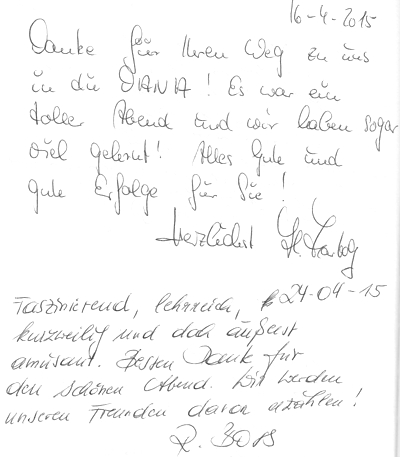 16-4-2015
Danke für Ihren Weg zu uns
in die DIANA! Es war ein
toller Abend und wir haben sogar
viel gelernt! Alles Gute und
gute Erfolge für Sie!
Herzlichst
24-04-15
Faszinierend, lehrreich,
kurzweilig und doch äußerst
amüsant. Besten Dank für
den schönen Abend. Wir werden
unseren Freunden davon erzählen!